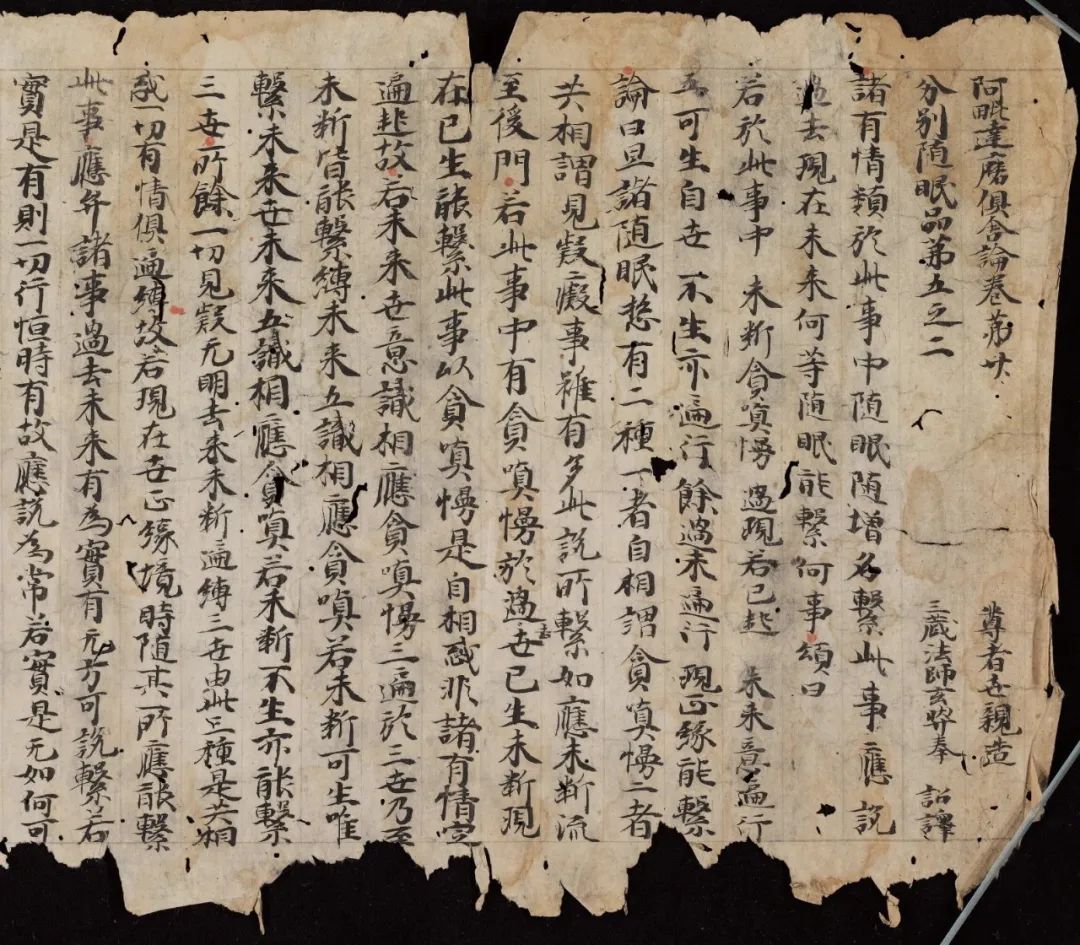 阿毗達磨俱舍論卷第廿 尊者世親造
分別随眠品第五之二 三藏法師玄奘奉 詔譯
諸有情類於此事中随眠随增名繫此事應說
過去現在未来何等随眠能繫何事頌曰
若於此事中 未断貪嗔慢 過現若已起 未来意遍行
五可生自世 不生亦遍行 餘過未遍行 現正緣能繫
論曰且諸随眠惣有二種一者自相謂貪嗔慢二者
共相謂見疑癡事雖有多此說所繫如應未断流
至後門若此事中有貪嗔慢於過世已生未断現
在已生能繫此事以貪嗔慢是自相惑非諸有情定
遍起故若未来世意識相應貪嗔慢三遍於三世乃至
未断皆能繫縛未来五識相應貪嗔若未断可生唯
繫未来世未来五識相應貪嗔若未断不生亦能繫
三世所餘一切見疑无明去来未断遍縛三世由此三種是共相
惑一切有情俱遍縛故若現在世正緣境時随其所應能繫
此事應弁諸事過去未来有為實有无方可說繫若
實是有則一切行恒時有故應說為常若實是无如何可